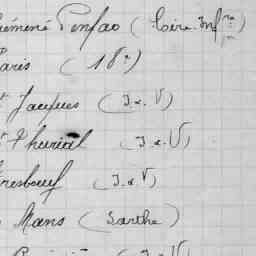 uéméné Penfao (Loire Infre
Paris (18e)
St Jacques (I.&.V)
St Thurial (I.&.V)
resbœuf (I.&.V)
Mans (Sarthe)
(I.&.V)